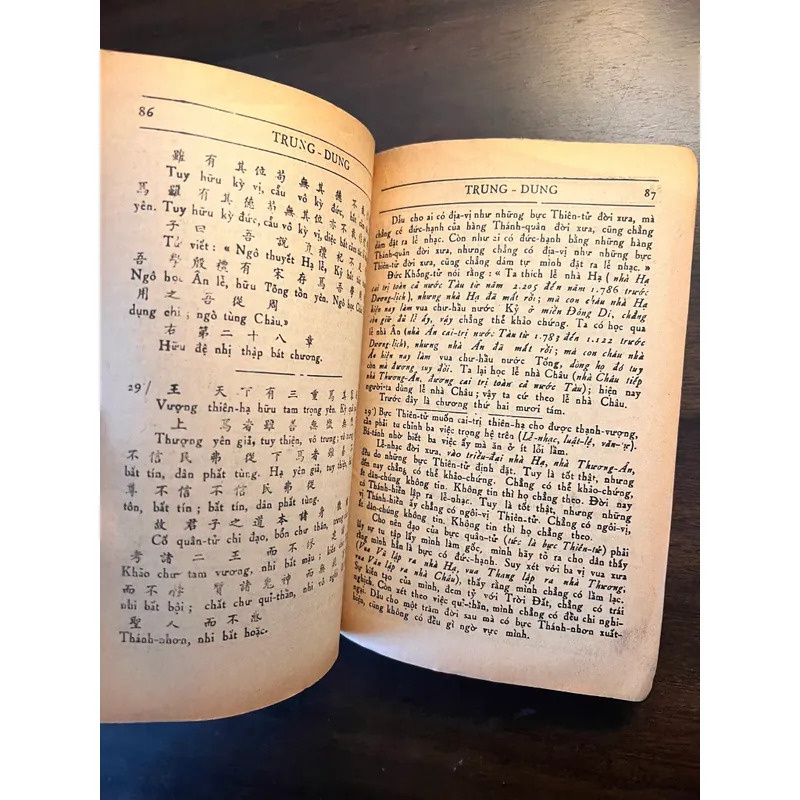 86
TRUNG - DUNG
雖 有 其 位 苟 無 其 德 不
Tuy hữu kỳ vị, cẩu vô kỳ đức, bất
馬 雖 有 其 德 苟 無 其 位 亦 不
yên. Tuy hữu kỳ đức, cẩu vô kỳ vị, diệc bất
子 曰 吾 說 禮 杞 不 足
Tử viết: « Ngô thuyết Hạ lễ, Kỷ bất
吾 學 殷 禮 有 宋 存 馬 吾 學 周
Ngô học Ân lễ, hữu Tống tồn yên. Ngô học Châu
用 之 吾 從 周
dụng chi; ngô tùng Châu.»
右 第 二 十 八 章
Hữu đệ nhị thập bát chương.
29°/ 王 天 下 有 三 重 馬 其
Vượng thiên-hạ hữu tam trọng yên. Kỳ
上 馬 者 雖 善 無
Thượng yên giả, tuy thiện, vô trưng; vô
不 信 民 弗 從 下 馬 者 雖 善 不
bất tín, dân phất tùng. Hạ yên giả, tuy thiện,
尊 不 信 不 信 民 弗 從
tôn, bất tín; bất tín, dân phất tùng.
故 君 子 之 道 本 諸 身
Cố quân-tử chi đạo, bổn chư thân,
考 諸 王 而 不
Khảo chư tam vương, nhi bất mậu;
而 不 質 諸 鬼 神 而 無
nhi bất bội; chất chư quỉ-thần, nhi vô
聖 人 而 不 惑
Thánh-nhơn, nhi bất hoặc.
TRUNG - DUNG
87
Dầu cho ai có địa-vị như những bực Thiên-tử đời xưa, mà
chẳng có đức-hạnh của hàng Thánh-quân đời xưa, cũng chẳng
dám đặt ra lễ nhạc. Còn như ai có đức-hạnh bằng những hàng
Thánh-quân đời xưa, nhưng chẳng có địa-vị như những bực
Thiên-tử đời xưa, cũng chẳng dám tự mình đặt ra lễ nhạc. »
Đức Khổng-tử nói rằng : « Ta thích lễ nhà Hạ (nhà Hạ
cai trị toàn cả nước Tàu từ năm 2.205 đến năm 1.786 trước
Dương-lịch), nhưng nhà Hạ đã mất rồi; mà con cháu nhà Hạ
hiện nay làm vua chư-hầu nước Kỷ ở miền Đông Di, chẳng
còn giữ đủ lễ ấy, vậy chẳng thể khảo-chứng. Ta có học qua
lễ nhà Ân (nhà Ân cai-trị nước Tàu từ 1.783 đến 1.122 trước
Dương-lịch), nhưng nhà Ân đã mất rồi; mà con cháu nhà
Ân hiện nay làm vua chư-hầu nước Tống, dòng họ đó tuy
còn mà đương, suy đồi. Ta lại học lễ nhà Châu (nhà Châu tiếp
nhà Thương-Ân, đương cai trị toàn cả nước Tàu); hiện nay
người-ta dùng lễ nhà Châu; vậy ta cứ theo lễ nhà Châu.
Trước đây là chương thứ hai mươi tám.
29°) Bực Thiên-tử muốn cai-trị thiên-hạ cho được thạnh-vượng,
cần phải tu chỉnh ba việc trọng hệ trên (Lễ-nhạc, luật-lệ, văn-tự).
Bá-tánh nhờ biết ba việc ấy mà ăn ở ít lỗi lầm.
Lễ-nhạc đời xưa, vào triều-đại nhà Hạ, nhà Thương-Ân,
đều do những bực Thiên-tử định đặt. Tuy là tốt thật, nhưng
đến nay chẳng có thể khảo-chứng. Chẳng có thể khảo-chứng,
ắt dân-chúng không tin. Không tin thì họ chẳng theo. Những
vị Thánh-hiền lập ra lễ-nhạc. Tuy là tốt thật, nhưng những
vị Thánh-hiền ấy chẳng có ngôi-vị Thiên-tử. Chẳng có ngôi-vị,
ắt dân-chúng không tin. Không tin thì họ chẳng theo.
Cho nên đạo của bực quân-tử (tức là bực Thiên-tử) phải
lấy sự tu tập lấy mình làm gốc, mình hãy tỏ ra cho dân thấy
rằng mình hẳn là bực có đức-hạnh. Suy xét với ba vị vua xưa
(Vua Vũ lập ra nhà Hạ, vua Thang lập ra nhà Thương,
vua Văn lập ra nhà Châu), thấy rằng mình chẳng có lầm lạc.
Sự kiến tạo của mình, đem tỷ với Trời Đất, chẳng có trái
nghịch. Còn xét theo việc quỉ-thần, mình chẳng có đều chi nghi-
ngại. Dầu cho một trăm đời sau mà có bực Thánh-nhơn xuất-
hiện, cũng không có đều gì ngờ vực mình.